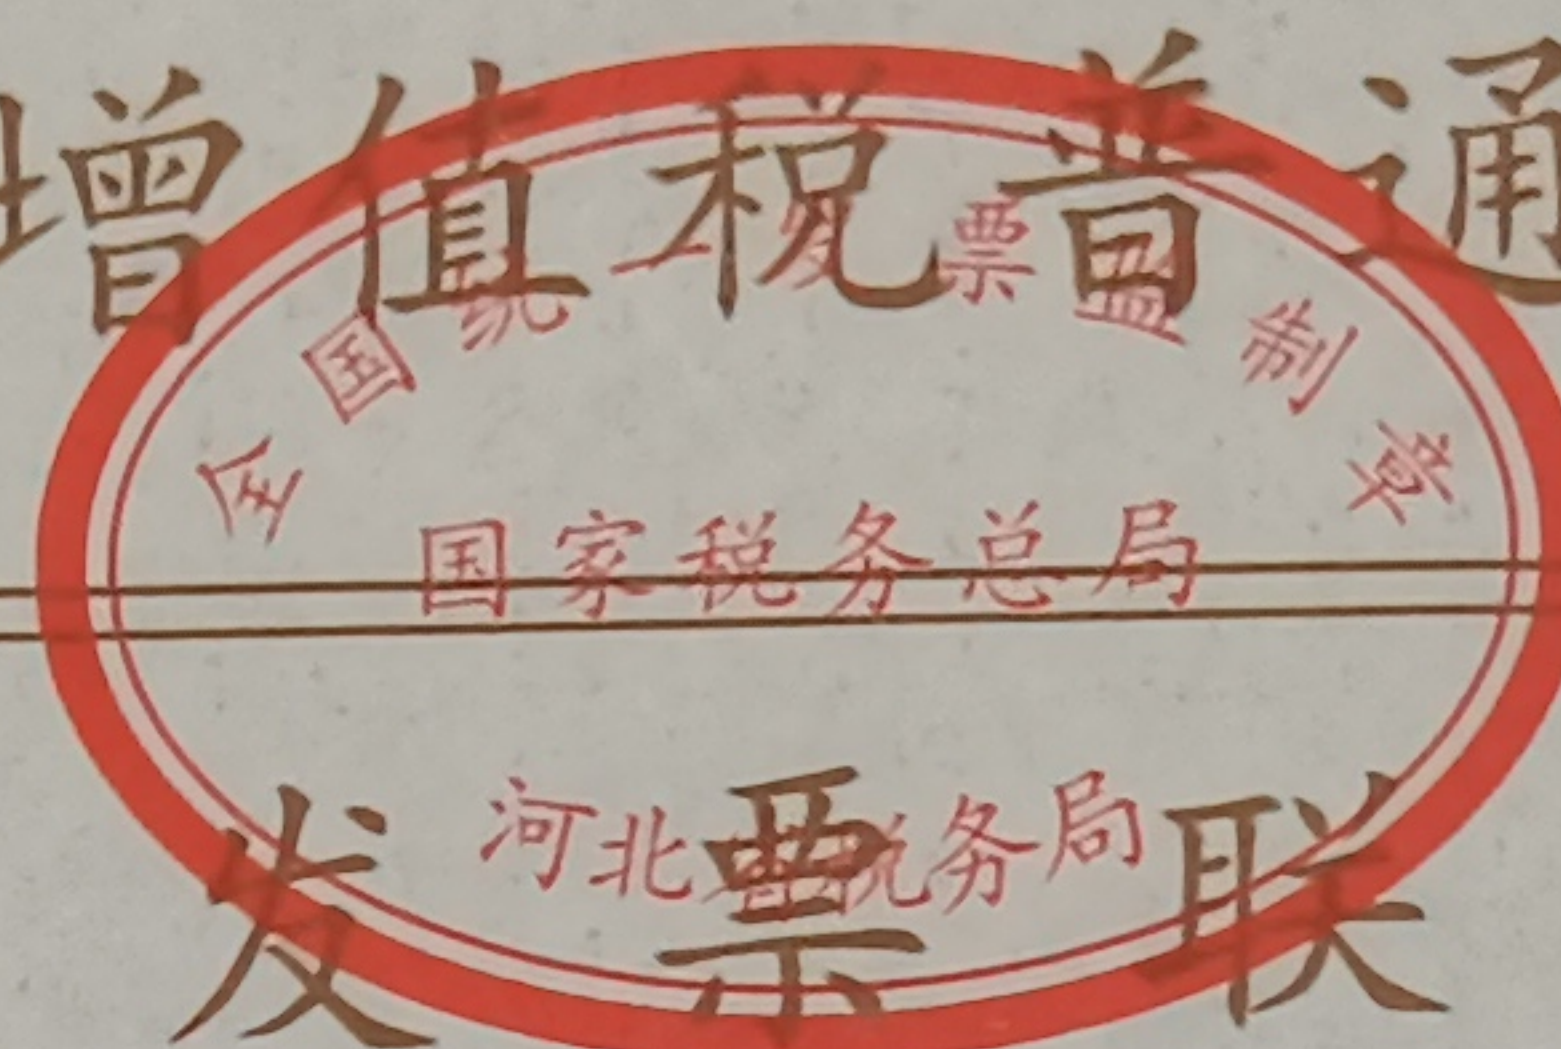 增值税普通
全国统一发票监制章
国家税务总局
河北省税务局
发票联